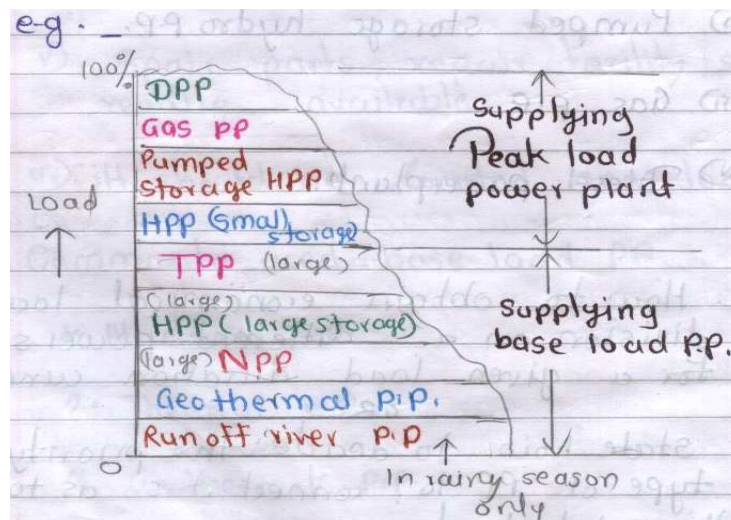 e-g. _
100%
DPP
Gas PP
Pumped
storage HPP
HPP (Small
storage)
TPP (large)
(large)
HPP (large storage)
(large) NPP
Geothermal P.P.
Run off river P.P
Load
0
Supplying
Peak load
power plant
Supplying
base load P.P.
In rainy season
only